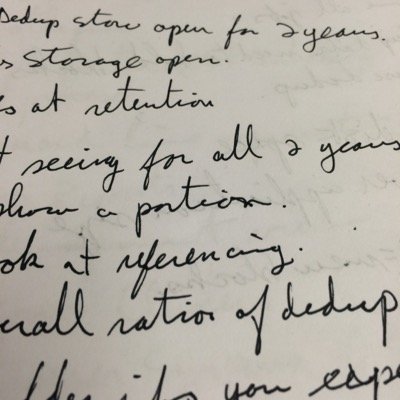 Dedup store open for 2 years.
Storage open.
at retention
seeing for all 2 years
show a portion.
ook at referencing.
erall ratios of dedup
you expe